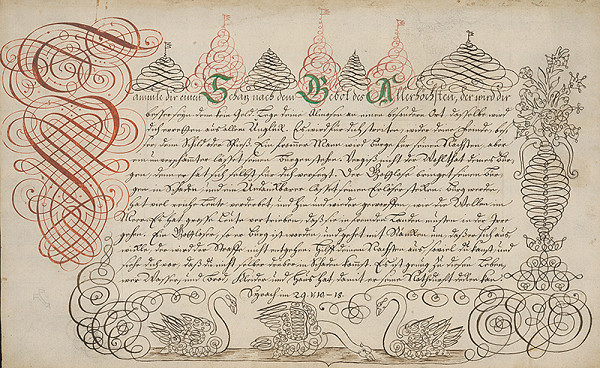 Sammle dir einen Schatz nach dem Gebot des Allerhöchsten, der wird dir
besser seyn denn kein Gold. Lege deine Almosen an einen besondern Ort, dasselbe wird
dich erretten aus allem Unglück. Es wird für dich streiten, wider deine Feinde, bes-
ser, denn Schild oder Spieß. Ein frommer Mann wird Bürge für seinen Nächsten, aber
ein unverschämter lässet seinen Bürgen stehen. Vergiß nicht der Wohlthat deines Bür-
gen, denn er hat sich selbst für dich versetzt. Der Gottlose bringet seinen Bür-
gen in Schaden, und ein Undankbarer lässet seinen Erlöser stecken. Bürge werden,
hat viel reiche Leute verderbet und hin und wieder geworffen, wie die Wellen im
Meer. Es hat grosse Leute vertrieben, daß sie in fremden Landen musten in der Irre
gehen. Ein Gottloser, so er Bürg ist worden, und gehet mit Räncken um, daß er sich aus-
wickle, der wird der Straffe nicht entgehen. Hilff deinem Nächsten aus, so viel du kanst, und
siehe dich vor, daß du nicht selber drüber in Schaden komst. Es ist genug zu diesem Leben,
wer Wasser und Brod, Kleider und Haus hat, damit er seine Nothdurft decken kan.
Syrach im 29. v. 10-18.